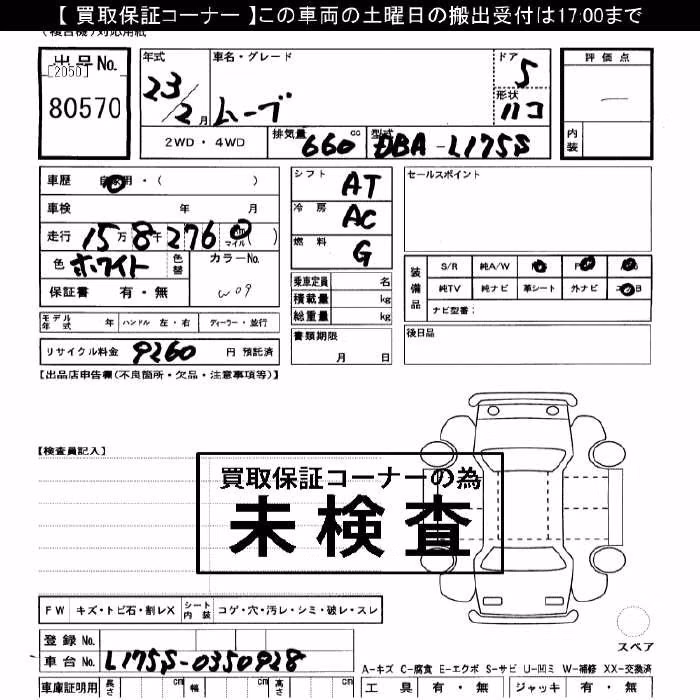 【 買取保証コーナー 】この車両の土曜日の搬出受付は17:00まで
(複合機)対応用紙
出品No.
[2050]
80570
年式
23/2月
車名・グレード
ムーブ
ドア
5
形状
ハコ
2WD・4WD
排気量 660 cc
型式 DBA-L175S
評価点
内装
車歴 自家用・( )
車検 年 月
走行 15万8千276 km マイル ( )
色 ホワイト
色替
カラーNo.
W09
保証書 有・無
シフト AT
冷房 AC
燃料 G
乗車定員 名
積載量 kg
総重量 kg
セールスポイント
装備品
S/R 純A/W
純TV 純ナビ 革シート 外ナビ
ナビ型番:
モデル年式 年 ハンドル 左・右 ディーラー・並行
書類期限
月 日
後日品
リサイクル料金 9260 円 預託済
【出品店申告欄(不良箇所・欠品・注意事項等)】
【検査員記入】
買取保証コーナーの為
未検査
FW キズ・トビ石・割レX
シート内装 コゲ・穴・汚レ・シミ・破レ・スレ
登録 No.
車台 No. L175S-0350928
スペア
A-キズ C-腐食 E-エクボ S-サビ U-凹ミ W-補修 XX-交換済
車庫証明用 長さ cm 幅 cm 高さ cm
工具 有・無 ジャッキ 有・無